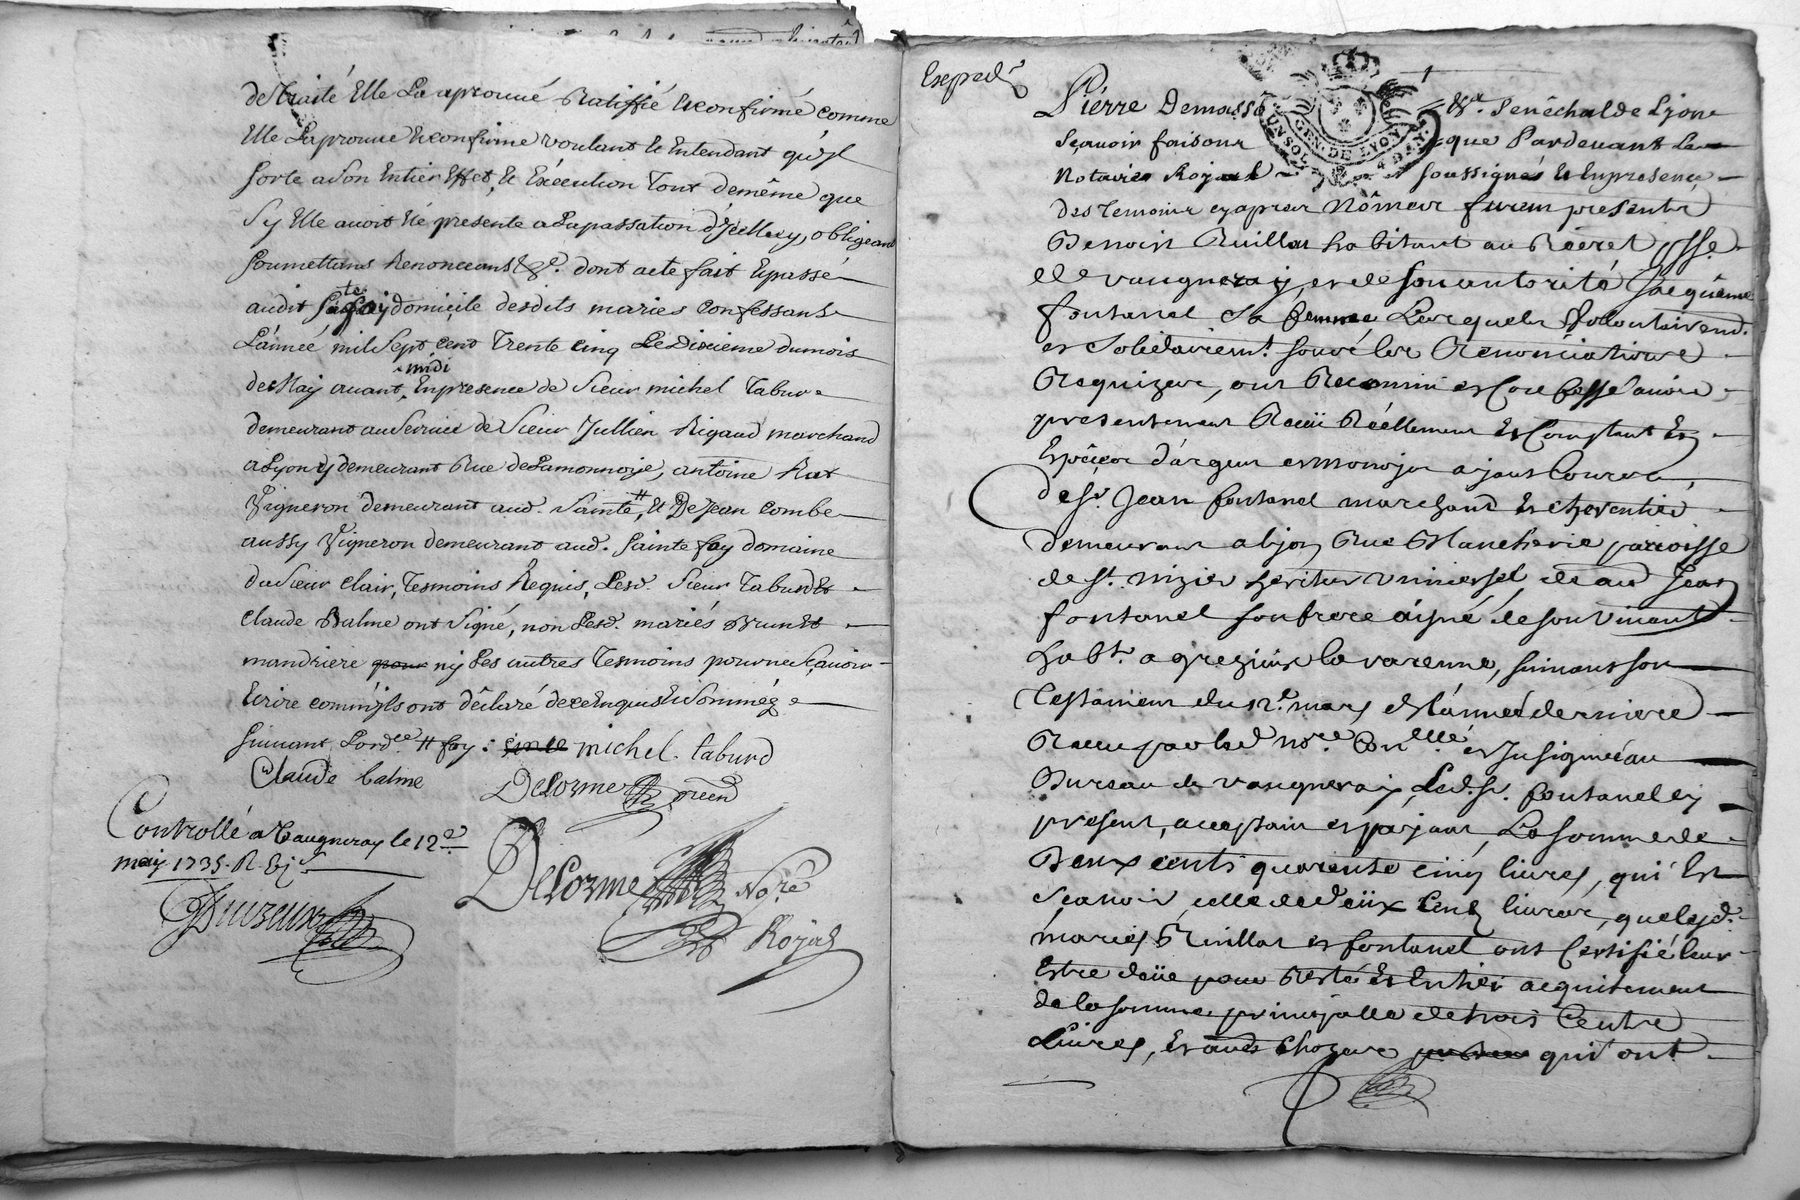 de traité Elle La aprouué Ratiffié Et confirmé comme
Elle Laprouue Et confirme voulant Et Entendant qu'jl
sorte a Son Entier Effet, Et Exécution Tout demême que
Sy Elle auoit Eté presente a La passation d'Jcelluy, obligeant
soumettans Renonceans &c. dont acte fait Et passé
audit Ste foy domicile desdits mariés confessants
L'année mil Sept cent Trente cinq Le Dixieme du mois
midi
de May auant, En presence de Sieur michel Taburd
demeurant au Seruice de Sieur Jullien Rigaud marchand
a Lyon y demeurant Rue de Lamonnoye, antoine Rat
Vigneron demeurant aud. Sainte #, Et De Jean Combe
aussy Vigneron demeurant aud. Sainte foy domaine
du Sieur Clair, Tesmoins Requis, Lesd. Sieur Taburd Et
Claude Balme ont Signé, non Lesd. mariés Brun Et
mandriere pour ny Les autres Tesmoins pour ne Sçauoir
Ecrire comm'jls ont déclaré de ce Enquis Et Sommés
suiuant Lordce # foy :
michel taburd
Claude balme
DeLorme
Controllé a Vaugneray le 12e
may 1735. R.
DeLorme Nore
Royal
Expedé
GEN. DE LYON
Pierre Demasso &c. Senêchal de Lyon
Sçauoir faisons que Pardeuant Le
Notaire Royal soussigné Et En presence
des Temoins cy apres Nommés furent presents
Benoist Ruillat habitant au Recret psse.
de vaugneray, et de son autorité Jacquême
fontanel sa femme Lesquels Volontairemt.
et Solidairemt. sous les Renonciations
Requizes, ont Reconnu et Confessé auoir
presentement Receu Réellement Et Comptant En
Espèces d'argent et monoye ayant Cours,
de Sr. Jean fontanel marchand Et charcutier
demeurant a Lyon Rue Blancherie parroisse
de St. nizier heritier Vniuersel de aut Jean
fontanel son frere aîsné de son Viuant
habt. a grezieux la varenne, suiuant son
Testament du 12e. mars de L'année derniere
Receu par led nore. Et Insignué au
Bureau de vaugneray, Led. Sr. fontanel cy
present, aceptant et payant, La Somme de
Deux cents quarente cinq liures, qui Est
Sçauoir, celle de deux Cents liures, que lesd.
mariés Ruillat et fontanel ont Certifié leur
Estre deüe pour Reste Et Entier acquittement
de la somme principalle de trois Cents
Liures, Et autres Chozes qui ont